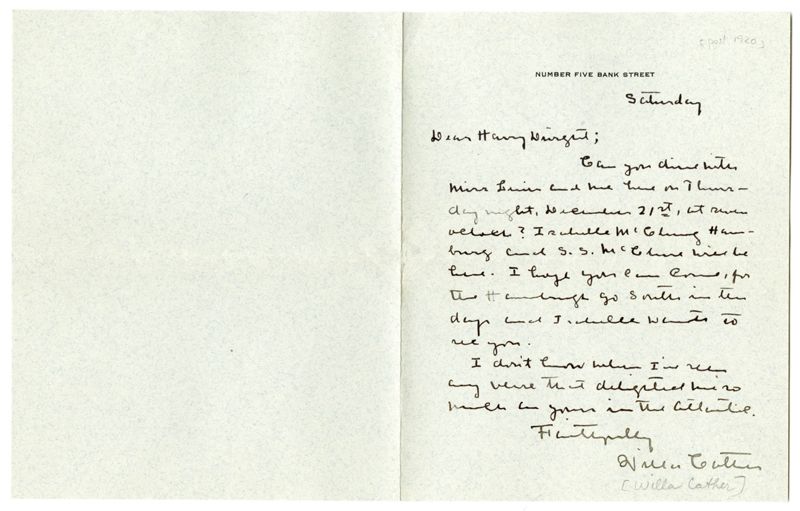 [post 1920]
NUMBER FIVE BANK STREET
Saturday
Dear Harry Dwight;
Can you dine with
Miss Lewis and me here on Thurs-
day night, December 21st, at seven
o'clock? Isabelle McClung Ham-
bourg and S. S. McClure will be
here. I hope you can come, for
the Hambourgs go South in ten
days and Isabelle wants to
see you.
I don't know when I've seen
any verse that delighted me so
much as yours in the Atlantic.
Faithfully
Willa Cather
[Willa Cather]